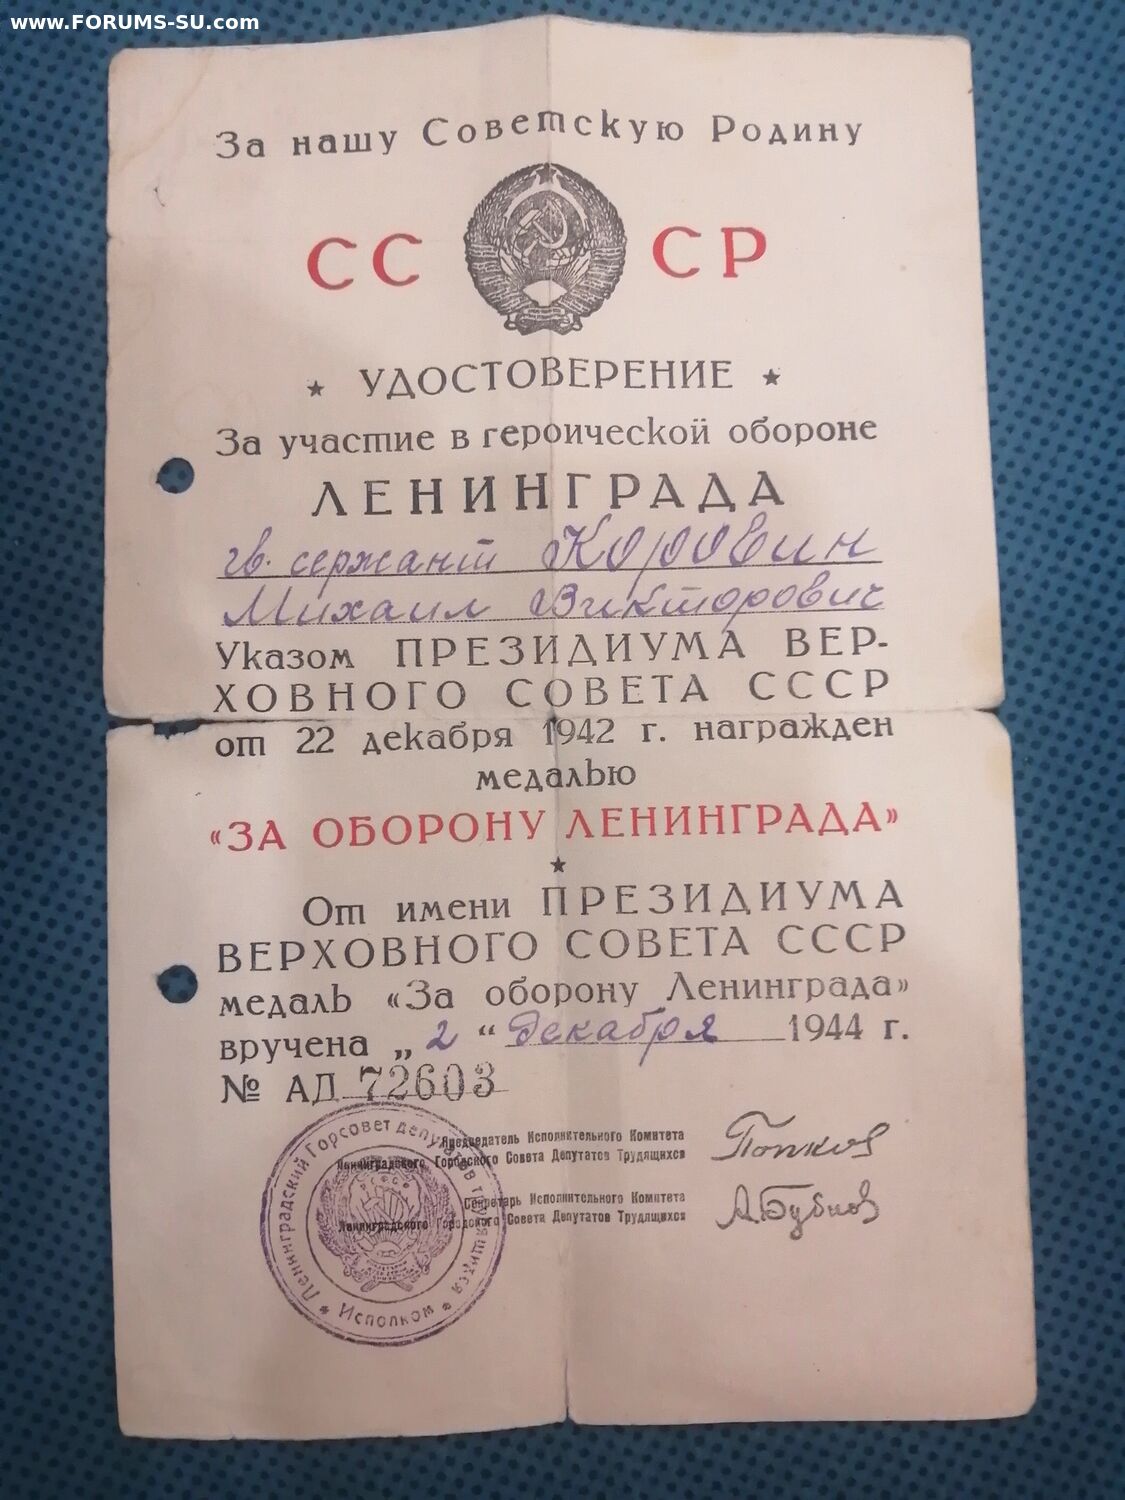 www.FORUMS-SU.com
За нашу Советскую Родину
СС СР
★ УДОСТОВЕРЕНИЕ ★
За участие в героической обороне
ЛЕНИНГРАДА
гв. сержант Коровин
Михаил Викторович
Указом ПРЕЗИДИУМА ВЕР-
ХОВНОГО СОВЕТА СССР
от 22 декабря 1942 г. награжден
медалью
«ЗА ОБОРОНУ ЛЕНИНГРАДА»
★
От имени ПРЕЗИДИУМА
ВЕРХОВНОГО СОВЕТА СССР
медаль «За оборону Ленинграда»
вручена „2“ декабря 1944 г.
№ АД 72603
Председатель Исполнительного Комитета
Ленинградского Городского Совета Депутатов Трудящихся
Попков
Секретарь Исполнительного Комитета
Ленинградского Городского Совета Депутатов Трудящихся
А. Бубнов
Ленинградский Горсовет депутатов трудящихся
★ Исполком ★
РСФСР